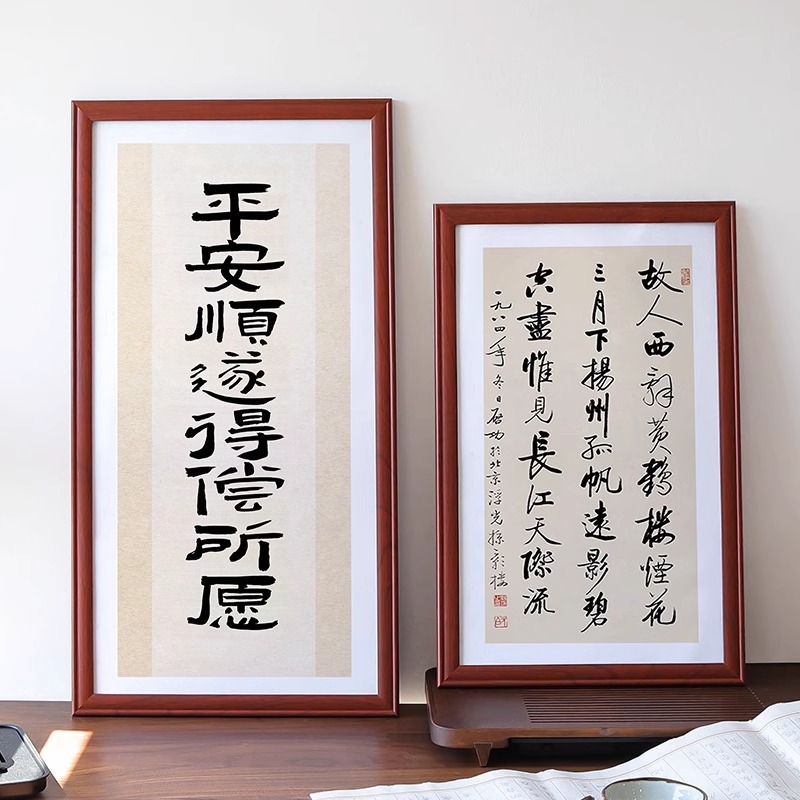 平安順遂得偿所愿
故人西辞黄鶴楼煙花
三月下揚州孤帆遠影碧
空盡惟見長江天際流
一九八四年冬日启功於北京浮光掠影楼